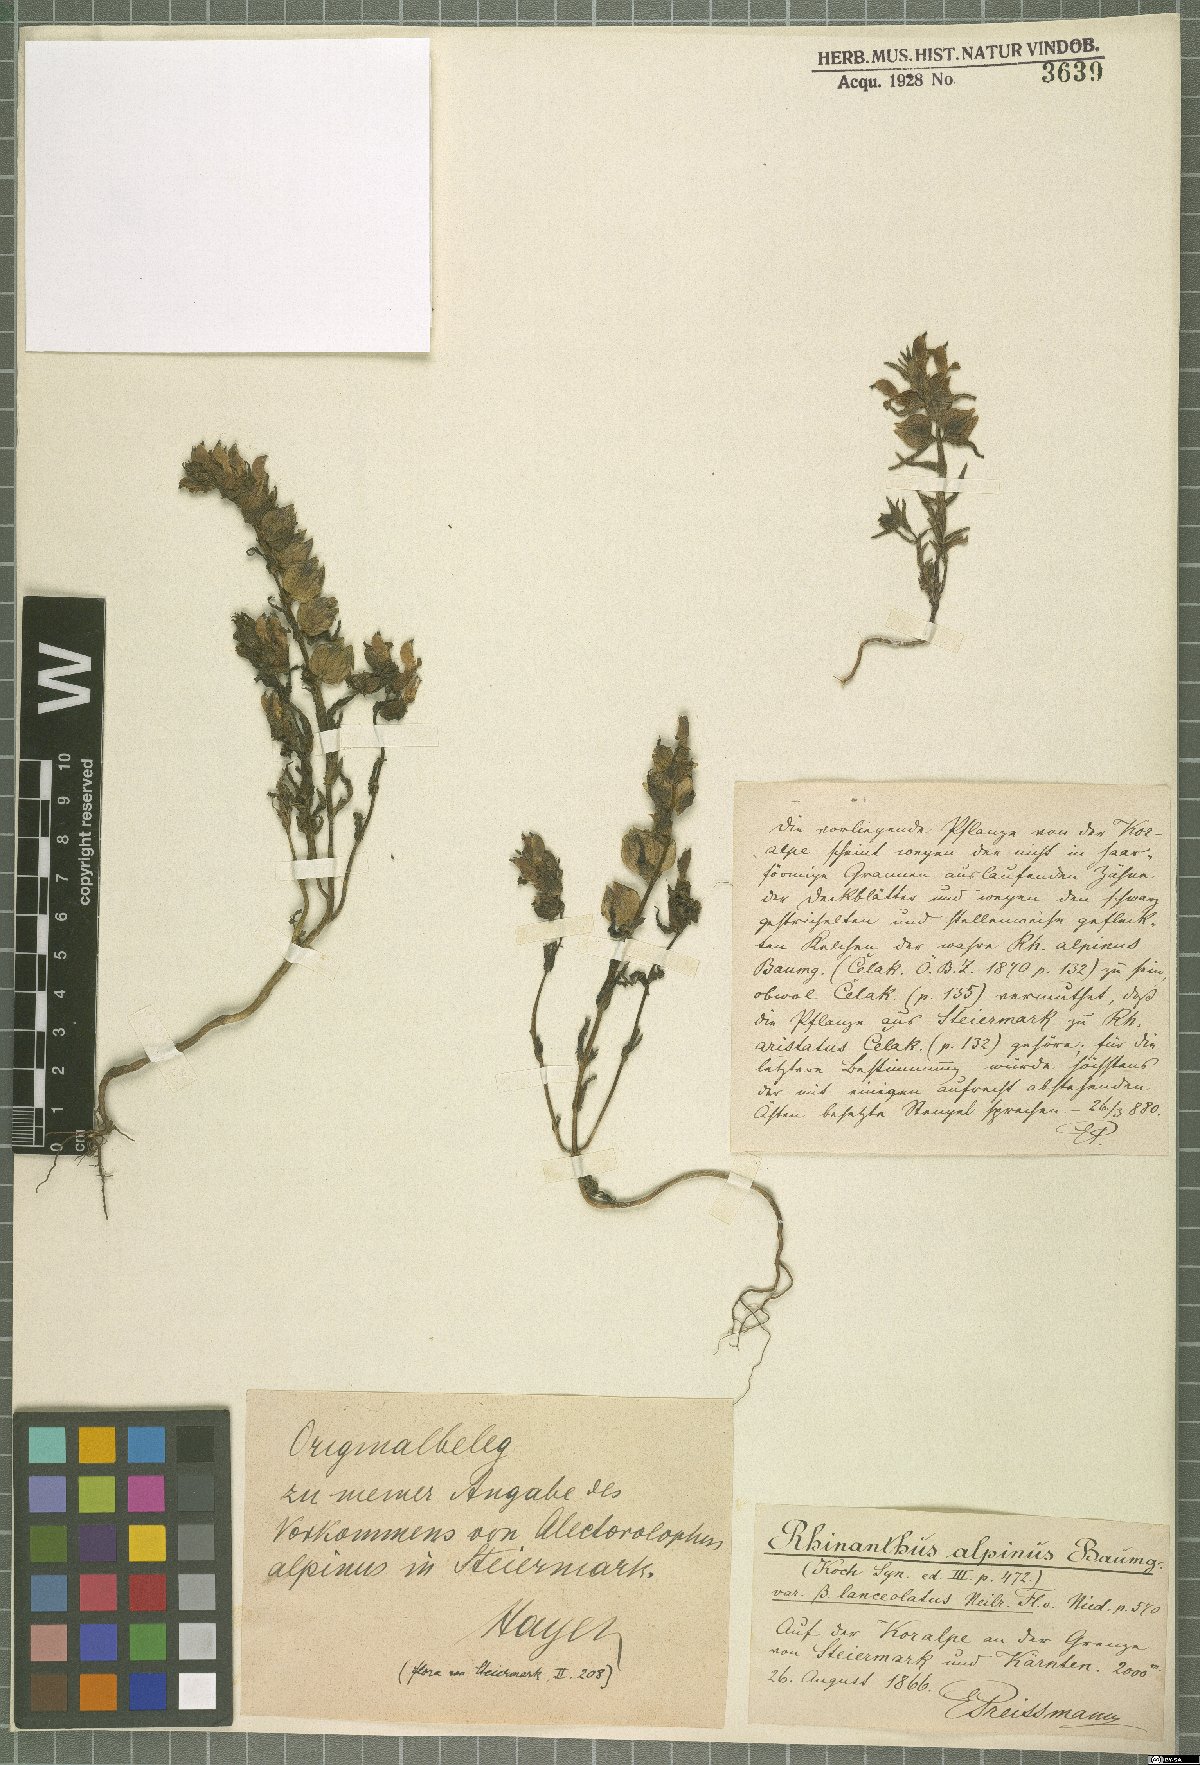 HERB. MUS. HIST. NATUR VINDOB.
Acqu. 1928 No. 3639
W
copyright reserved
0 1 2 3 4 5 6 7 8 9 10
cm
Die vorliegende Pflanze von der Kor-
alpe scheint wegen der nicht in haar-
förmige Grannen auslaufenden Zähne
der Deckblätter und wegen den schwarz
gestrichelten und stellenweise gefleck-
ten Kelchen der wahre Rh. alpinus
Baumg. (Čelak. Ö.B.Z. 1870 p. 132) zu sein,
obwol Čelak. (p. 135) vermuthet, daß
die Pflanze aus Steiermark zu Rh.
aristatus Čelak. (p. 132) gehöre; für die
letztere Bestimmung würde höchstens
der mit einigen aufrecht abstehenden
Ästen besetzte Stengel sprechen – 26/3 880.
EP.
Originalbeleg
zu meiner Angabe des
Vorkommens von Alectorolophus
alpinus in Steiermark.
Hayek
(Flora von Steiermark, II. 208)
Rhinanthus alpinus Baumg.
(Koch Syn. ed III p. 472.)
var. β lanceolatus Neilr. Fl. v. Nied. p. 570
Auf der Koralpe an der Grenze
von Steiermark und Kärnten. 2000m
26. August 1866.
EPreissmann
BY-SA